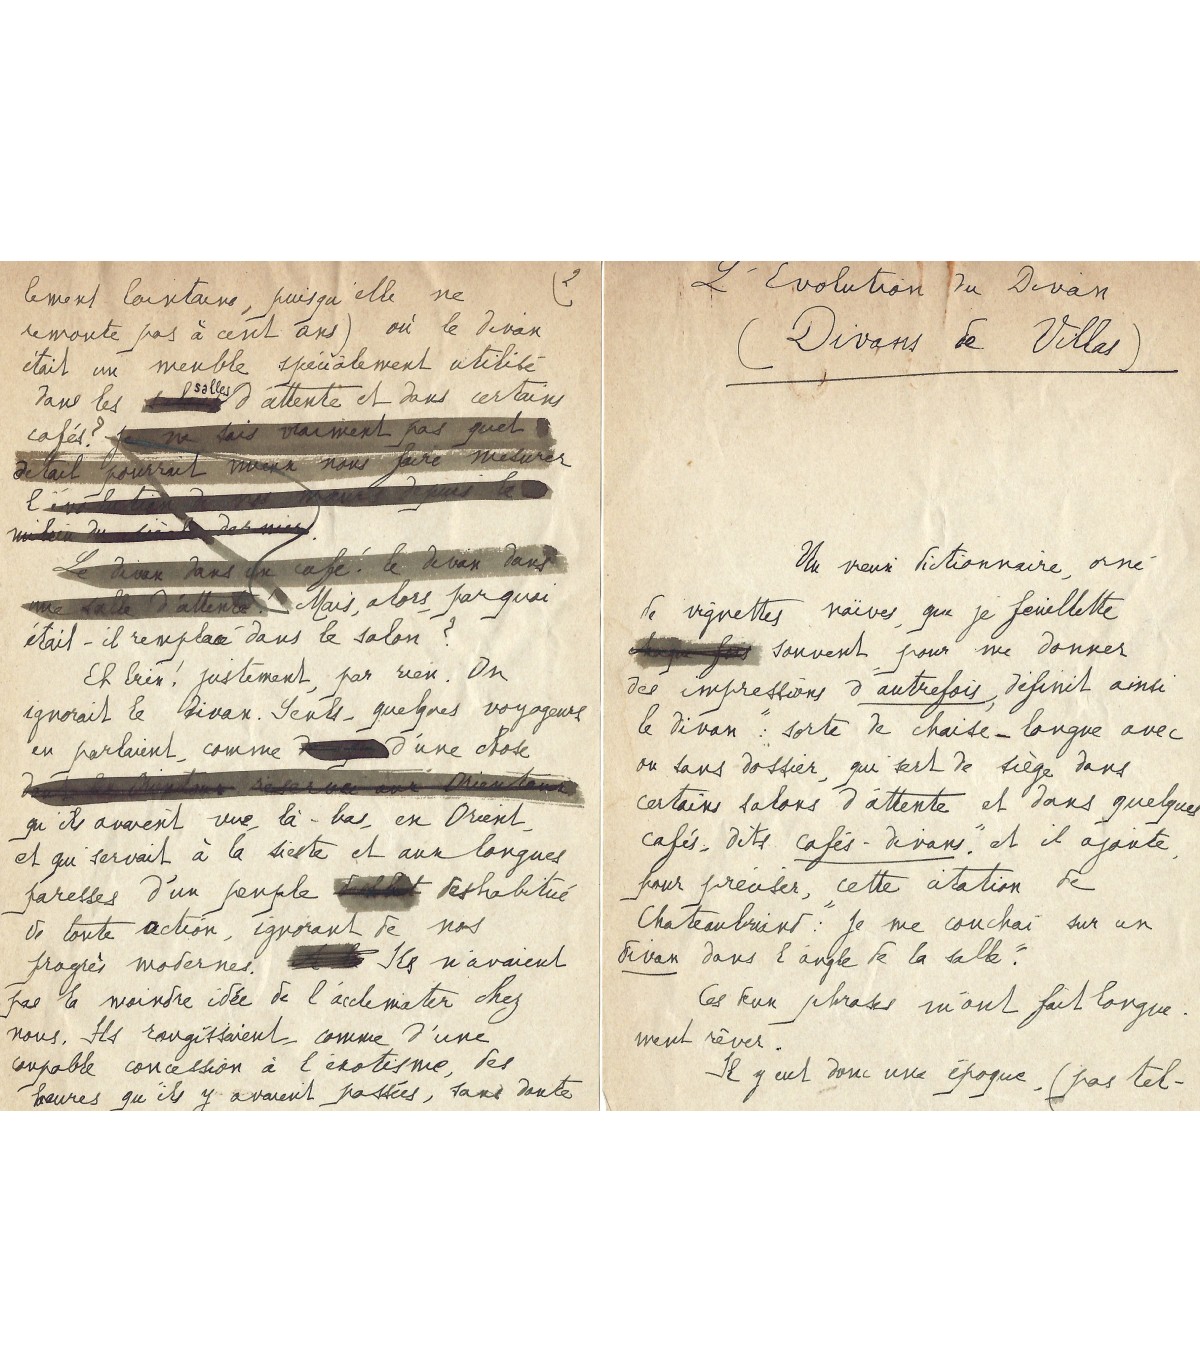 L'Evolution du Divan
(Divans de Villas)
Un vieux dictionnaire, orné
de vignettes naïves, que je feuillette
souvent, pour me donner
des impressions d'autrefois, définit ainsi
le divan : "sorte de chaise-longue avec
ou sans dossier, qui sert de siège dans
certains salons d'attente et dans quelques
cafés, dits cafés-divans." et il ajoute,
pour préciser, cette citation de
Chateaubriand : "Je me couchai sur un
divan dans l'angle de la salle".
Ces deux phrases m'ont fait longue-
ment rêver.
Il y eut donc une époque, (pas tel-
2
lement lointaine, puisqu'elle ne
remonte pas à cent ans) où le divan
était un meuble spécialement utilisé
dans les salles d'attente et dans certains
cafés? Je ne sais vraiment pas quel
détail pourrait mieux nous faire mesurer
l'évolution de nos mœurs depuis le
milieu du siècle dernier.
Le divan dans un café! le divan dans
une salle d'attente! Mais, alors, par quoi
était-il remplacé dans le salon?
Eh bien! justement, par rien. On
ignorait le divan. Seuls, quelques voyageurs
en parlaient, comme d'une chose
réservée aux Orientaux
qu'ils avaient vue, là-bas, en Orient,
et qui servait à la sieste et aux longues
paresses d'un peuple deshabitué
de toute action, ignorant de nos
progrès modernes. Ils n'avaient
pas la moindre idée de l'acclimater chez
nous. Ils rougissaient, comme d'une
coupable concession à l'érotisme, des
heures qu'ils y avaient passées, sans doute